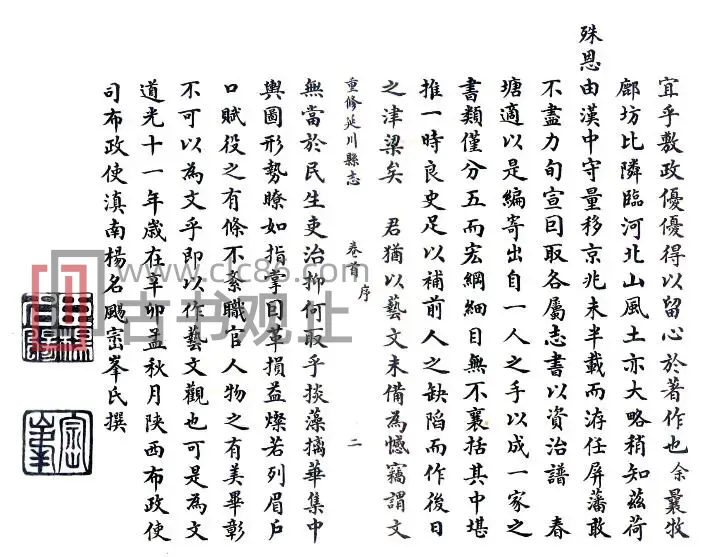 宜乎敷政優優得以留心於著作也余曩牧
鄜坊比隣臨河北山風土亦大略稍知茲荷
殊恩由漢中守量移京兆未半載而洊任屏藩敢
不盡力旬宣囙取各屬志書以資治譜 春
塘適以是編寄出自一人之手以成一家之
書類僅分五而宏綱細目無不裒括其中堪
推一時良史足以補前人之缺陷而作後日
之津梁矣 君猶以藝文未備為憾竊謂文
重修延川縣志 卷首 序 二
無當於民生吏治抑何取乎掞藻摛華集中
輿圖形勢瞭如指掌囙革損益燦若列眉戶
口賦役之有條不紊職官人物之有美畢彰
不可以為文乎即以作藝文觀也可是為文
道光十一年歲在辛卯孟秋月陝西布政使
司布政使滇南楊名颺崇峯氏撰
www.cjc86.com
古书观止